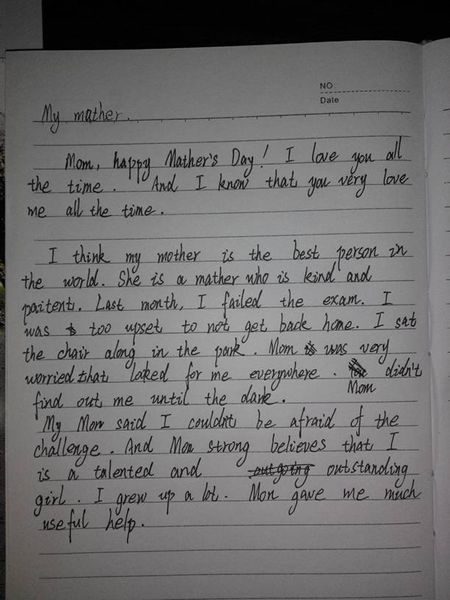 NO
Date
My mather.
Mom, happy Mather's Day! I love you all
the time. And I know that you very love
me all the time.
I think my mother is the best person in
the world. She is a mather who is kind and
paitent. Last month, I failed the exam. I
was too upset to not get back home. I sat
the chair along in the park. Mom was very
worried that loaked for me everywhere. Mom didn't
find out me until the dark.
My Mom said I couldnt be afraid of the
challenge. And Mom strong believes that I
is a talented and outgoing outstanding
girl. I grew up a lot. Mom gave me much
useful help.